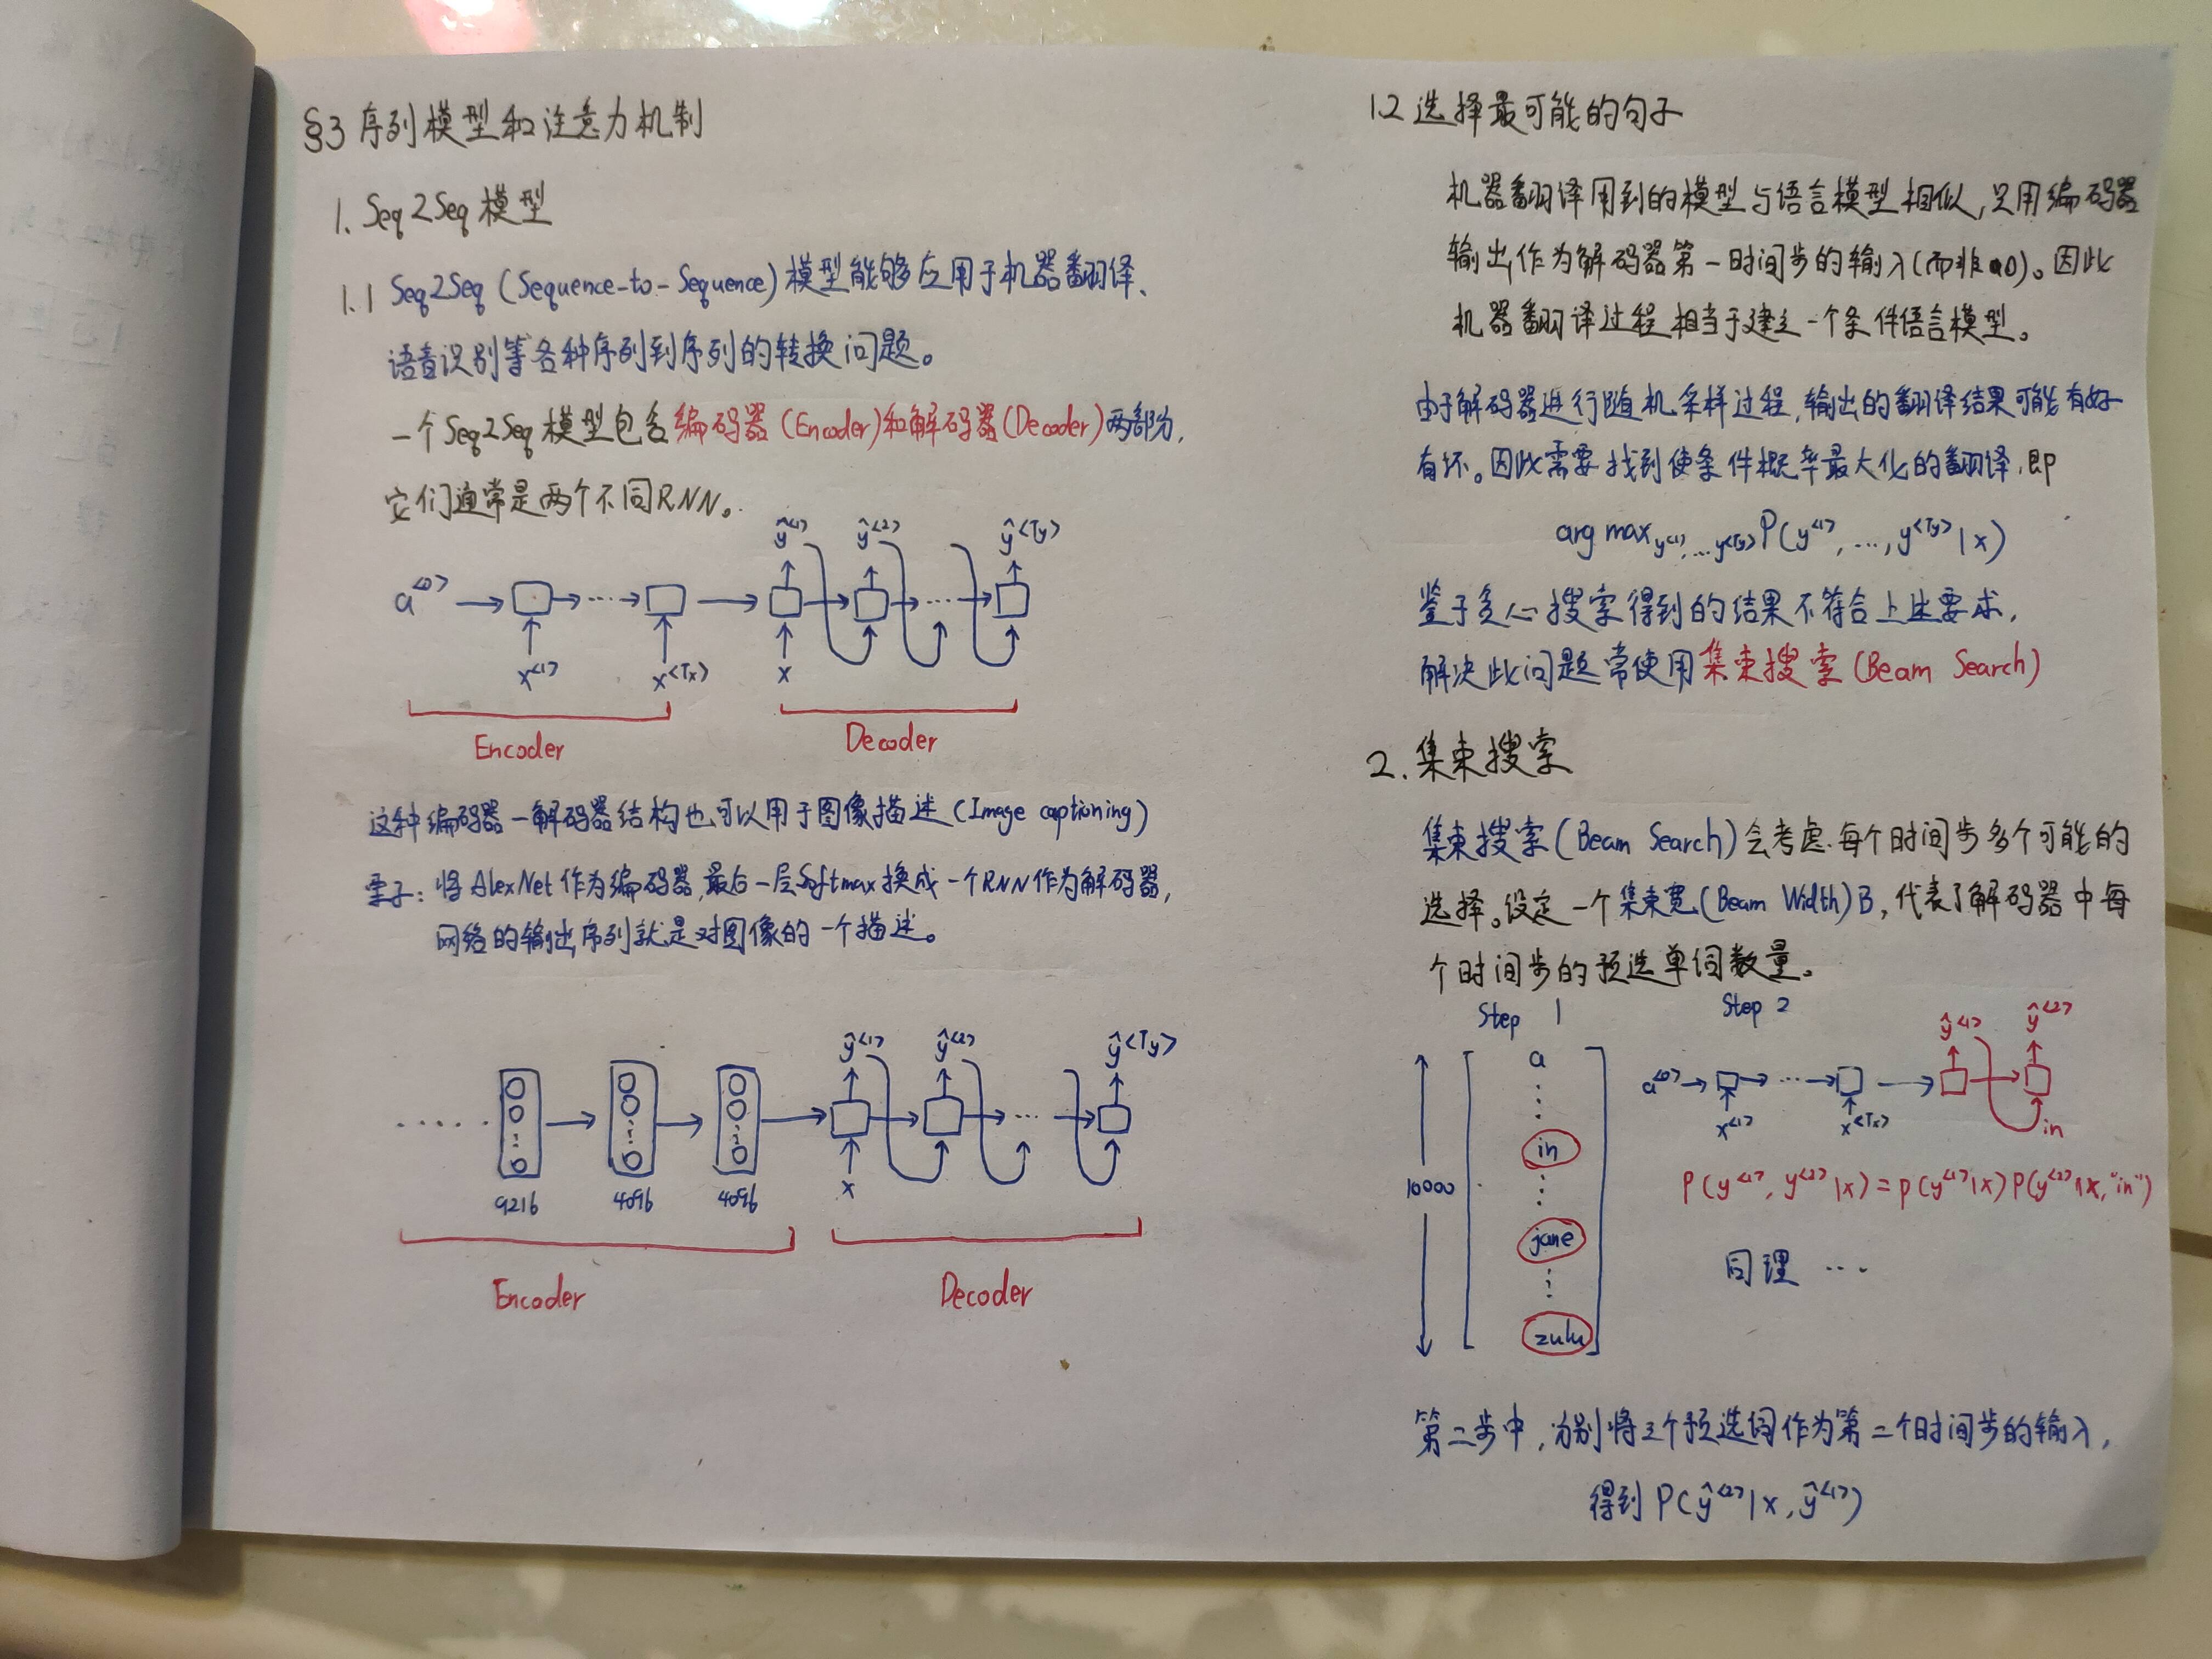 §3 序列模型和注意力机制
1. Seq2Seq 模型
1.1 Seq2Seq (Sequence-to-Sequence) 模型能够应用于机器翻译、
语音识别等各种序列到序列的转换问题。
一个Seq2Seq模型包含编码器(Encoder)和解码器(Decoder)两部分,
它们通常是两个不同RNN。
ŷ<1> ŷ<2> ŷ<Ty>
a<0> → → ··· → → → → ··· →
x<1> x<Tx> x
Encoder Decoder
这种编码器-解码器结构也可以用于图像描述(Image captioning)
栗子: 将AlexNet作为编码器,最后一层Softmax换成一个RNN作为解码器,
网络的输出序列就是对图像的一个描述。
ŷ<1> ŷ<2> ŷ<Ty>
x
9216 4096 4096
Encoder Decoder
1.2 选择最可能的句子
机器翻译用到的模型与语言模型相似,只用编码器
输出作为解码器第一时间步的输入(而非a0)。因此
机器翻译过程相当于建立一个条件语言模型。
由于解码器进行随机采样过程,输出的翻译结果可能有好
有坏。因此需要找到使条件概率最大化的翻译,即
arg max y<1>,...y<Ty> P(y<1>, ..., y<Ty> | x)
鉴于贪心搜索得到的结果不符合上述要求,
解决此问题常使用集束搜索(Beam Search)
2. 集束搜索
集束搜索(Beam Search)会考虑每个时间步多个可能的
选择。设定一个集束宽(Beam Width)B,代表了解码器中每
个时间步的预选单词数量。
Step 1
10000
a
in
jane
zulu
Step 2
ŷ<1> ŷ<2>
a<0> → → ··· → →
x<1> x<Tx> in
P(y<1>, y<2> | x) = P(y<1> | x) P(y<2> | x, "in")
同理 ···
第二步中,分别将三个预选词作为第二个时间步的输入,
得到 P(ŷ<2> | x, ŷ<1>)